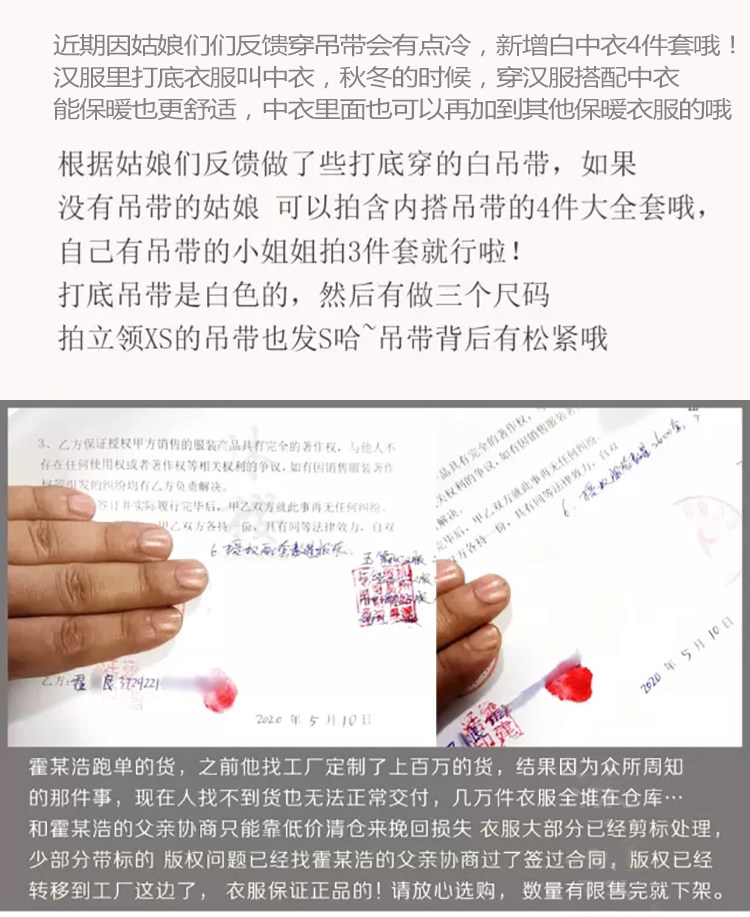 近期因姑娘们们反馈穿吊带会有点冷，新增白中衣4件套哦！
汉服里打底衣服叫中衣，秋冬的时候，穿汉服搭配中衣
能保暖也更舒适，中衣里面也可以再加到其他保暖衣服的哦
根据姑娘们反馈做了些打底穿的白吊带，如果
没有吊带的姑娘 可以拍含内搭吊带的4件大全套哦，
自己有吊带的小姐姐拍3件套就行啦！
打底吊带是白色的，然后有做三个尺码
拍立领XS的吊带也发S哈~吊带背后有松紧哦
3、乙方保证授权甲方销售的服装产品具有完全的著作权，与他人不
存在任何使用权或者著作权等相关权利的争议，如有因销售服装著作
权等引发的纠纷均有乙方负责解决。
签订并实际履行完毕后，甲乙双方就此事再无任何纠纷。
甲乙双方各持一份，具有同等法律效力，自双
乙方：
2020 年 5 月 10 日
品具有完全的著作权，与他
关权利的争议，如有因销售服装著
解决。
毕后，甲乙双方就此事再无任何纠纷。
双方各持一份，具有同等法律效力，自双
2020 年 5 月 10 日
霍某浩跑单的货，之前他找工厂定制了上百万的货，结果因为众所周知
的那件事，现在人找不到货也无法正常交付，几万件衣服全堆在仓库…
和霍某浩的父亲协商只能靠低价清仓来挽回损失 衣服大部分已经剪标处理，
少部分带标的 版权问题已经找霍某浩的父亲协商过了签过合同，版权已经
转移到工厂这边了， 衣服保证正品的！请放心选购， 数量有限售完就下架。